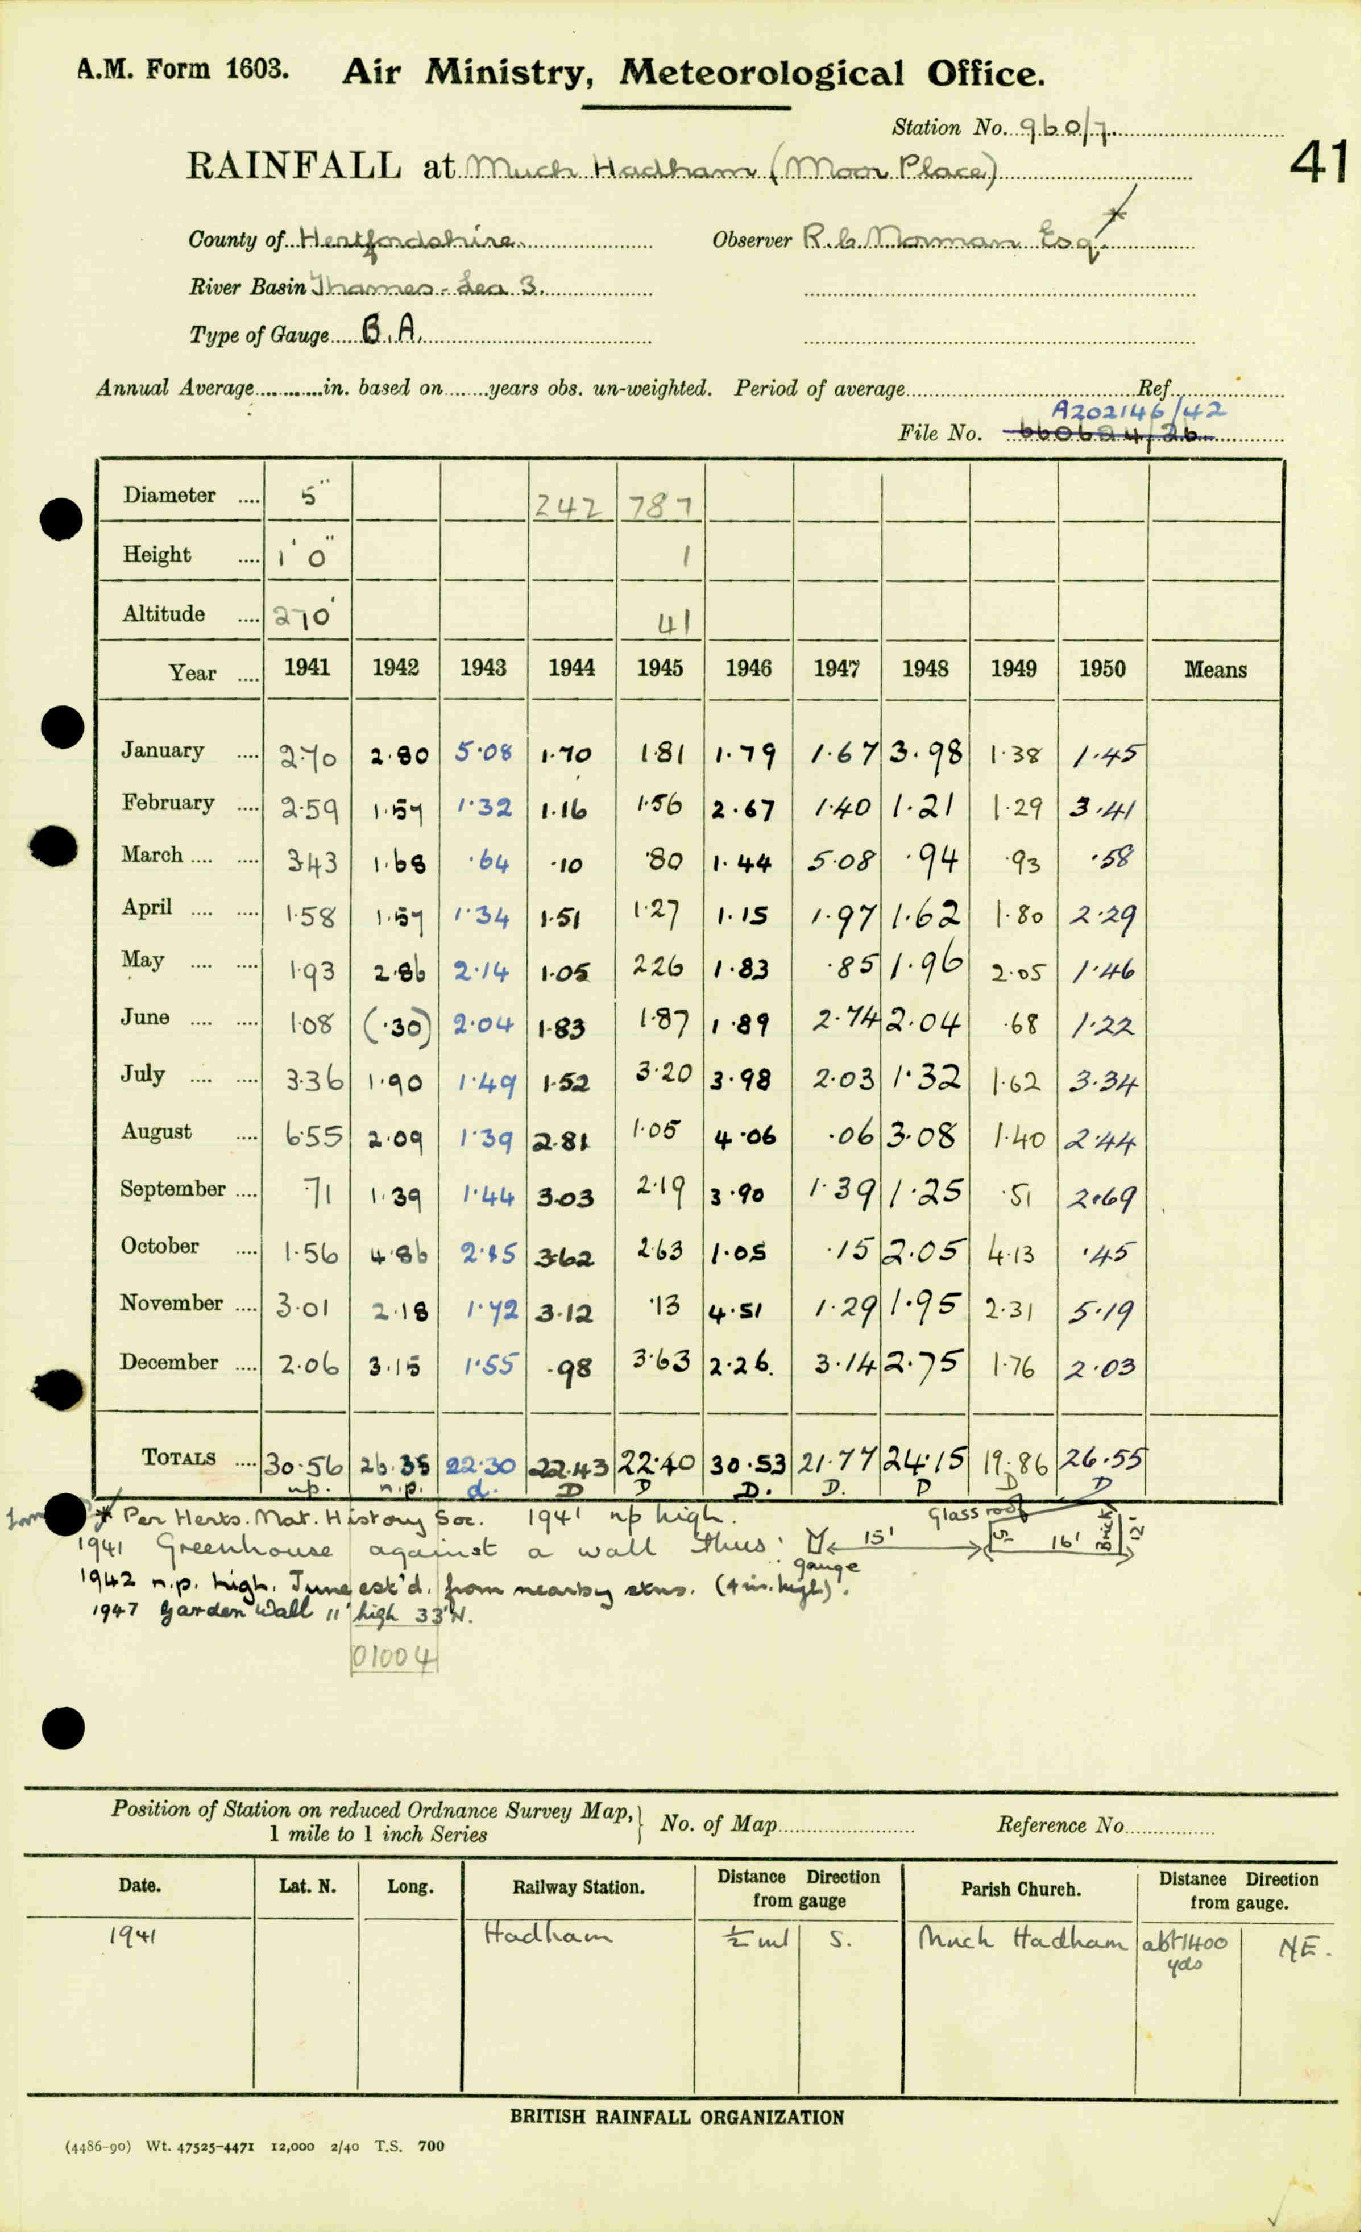 A.M. Form 1603. Air Ministry, Meteorological Office.
Station No. 960/7.
41
RAINFALL at Much Hadham (Moor Place)
County of Hertfordshire. Observer R.C. Norman Esq. *
River Basin Thames-Lea 3.
Type of Gauge B.A.
Annual Average in. based on years obs. un-weighted. Period of average Ref.
A202146/42
File No.
Diameter 5" 242 787
Height 1' 0" 1
Altitude 270' 41
Year 1941 1942 1943 1944 1945 1946 1947 1948 1949 1950 Means
January 2.70 2.80 5.08 1.70 1.81 1.79 1.67 3.98 1.38 1.45
February 2.59 1.57 1.32 1.16 1.56 2.67 1.40 1.21 1.29 3.41
March 3.43 1.68 .64 .10 .80 1.44 5.08 .94 .93 .58
April 1.58 1.57 1.34 1.51 1.27 1.15 1.97 1.62 1.80 2.29
May 1.93 2.86 2.14 1.05 2.26 1.83 .85 1.96 2.05 1.46
June 1.08 (.30) 2.04 1.83 1.87 1.89 2.74 2.04 .68 1.22
July 3.36 1.90 1.49 1.52 3.20 3.98 2.03 1.32 1.62 3.34
August 6.55 2.09 1.39 2.81 1.05 4.06 .06 3.08 1.40 2.44
September .71 1.39 1.44 3.03 2.19 3.90 1.39 1.25 .51 2.69
October 1.56 4.86 2.15 3.62 2.63 1.05 .15 2.05 4.13 .45
November 3.01 2.18 1.72 3.12 .13 4.51 1.29 1.95 2.31 5.19
December 2.06 3.15 1.55 .98 3.63 2.26. 3.14 2.75 1.76 2.03
TOTALS 30.56 26.35 22.30 22.43 22.40 30.53 21.77 24.15 19.86 26.55
n.p. n.p. d. D D D. D. D D D
* Per Herts. Nat. History Soc. 1941 np high. Glass roof
1941 Greenhouse against a wall thus: 15' 5' 16' Brick 12'
gauge
1942 n.p. high. June est'd. from nearby stns. (4 in. high).
1947 Garden Wall 11' high 33' N.
01004
Position of Station on reduced Ordnance Survey Map, 1 mile to 1 inch Series } No. of Map Reference No.
Date. Lat. N. Long. Railway Station. Distance Direction from gauge Parish Church. Distance Direction from gauge.
1941 Hadham ½ ml S. Much Hadham abt 1400 yds NE.
BRITISH RAINFALL ORGANIZATION
(4486-90) Wt. 47525-4471 12,000 2/40 T.S. 700